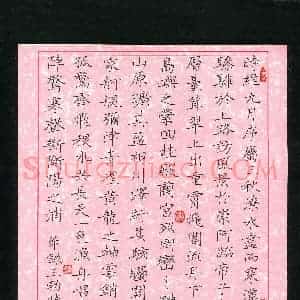 時維九月序屬三秋潦水盡而寒潭
驂騑於上路訪風景於崇阿臨帝子
層巒聳翠上出重霄飛閣流丹下
島嶼之縈回桂殿蘭宮即岡巒之
山原曠其盈視川澤紆其駭矚閭
家舸艦彌津青雀黃龍之舳雲銷
孤鶩齊飛秋水共長天一色漁舟唱
陣驚寒聲斷衡陽之浦